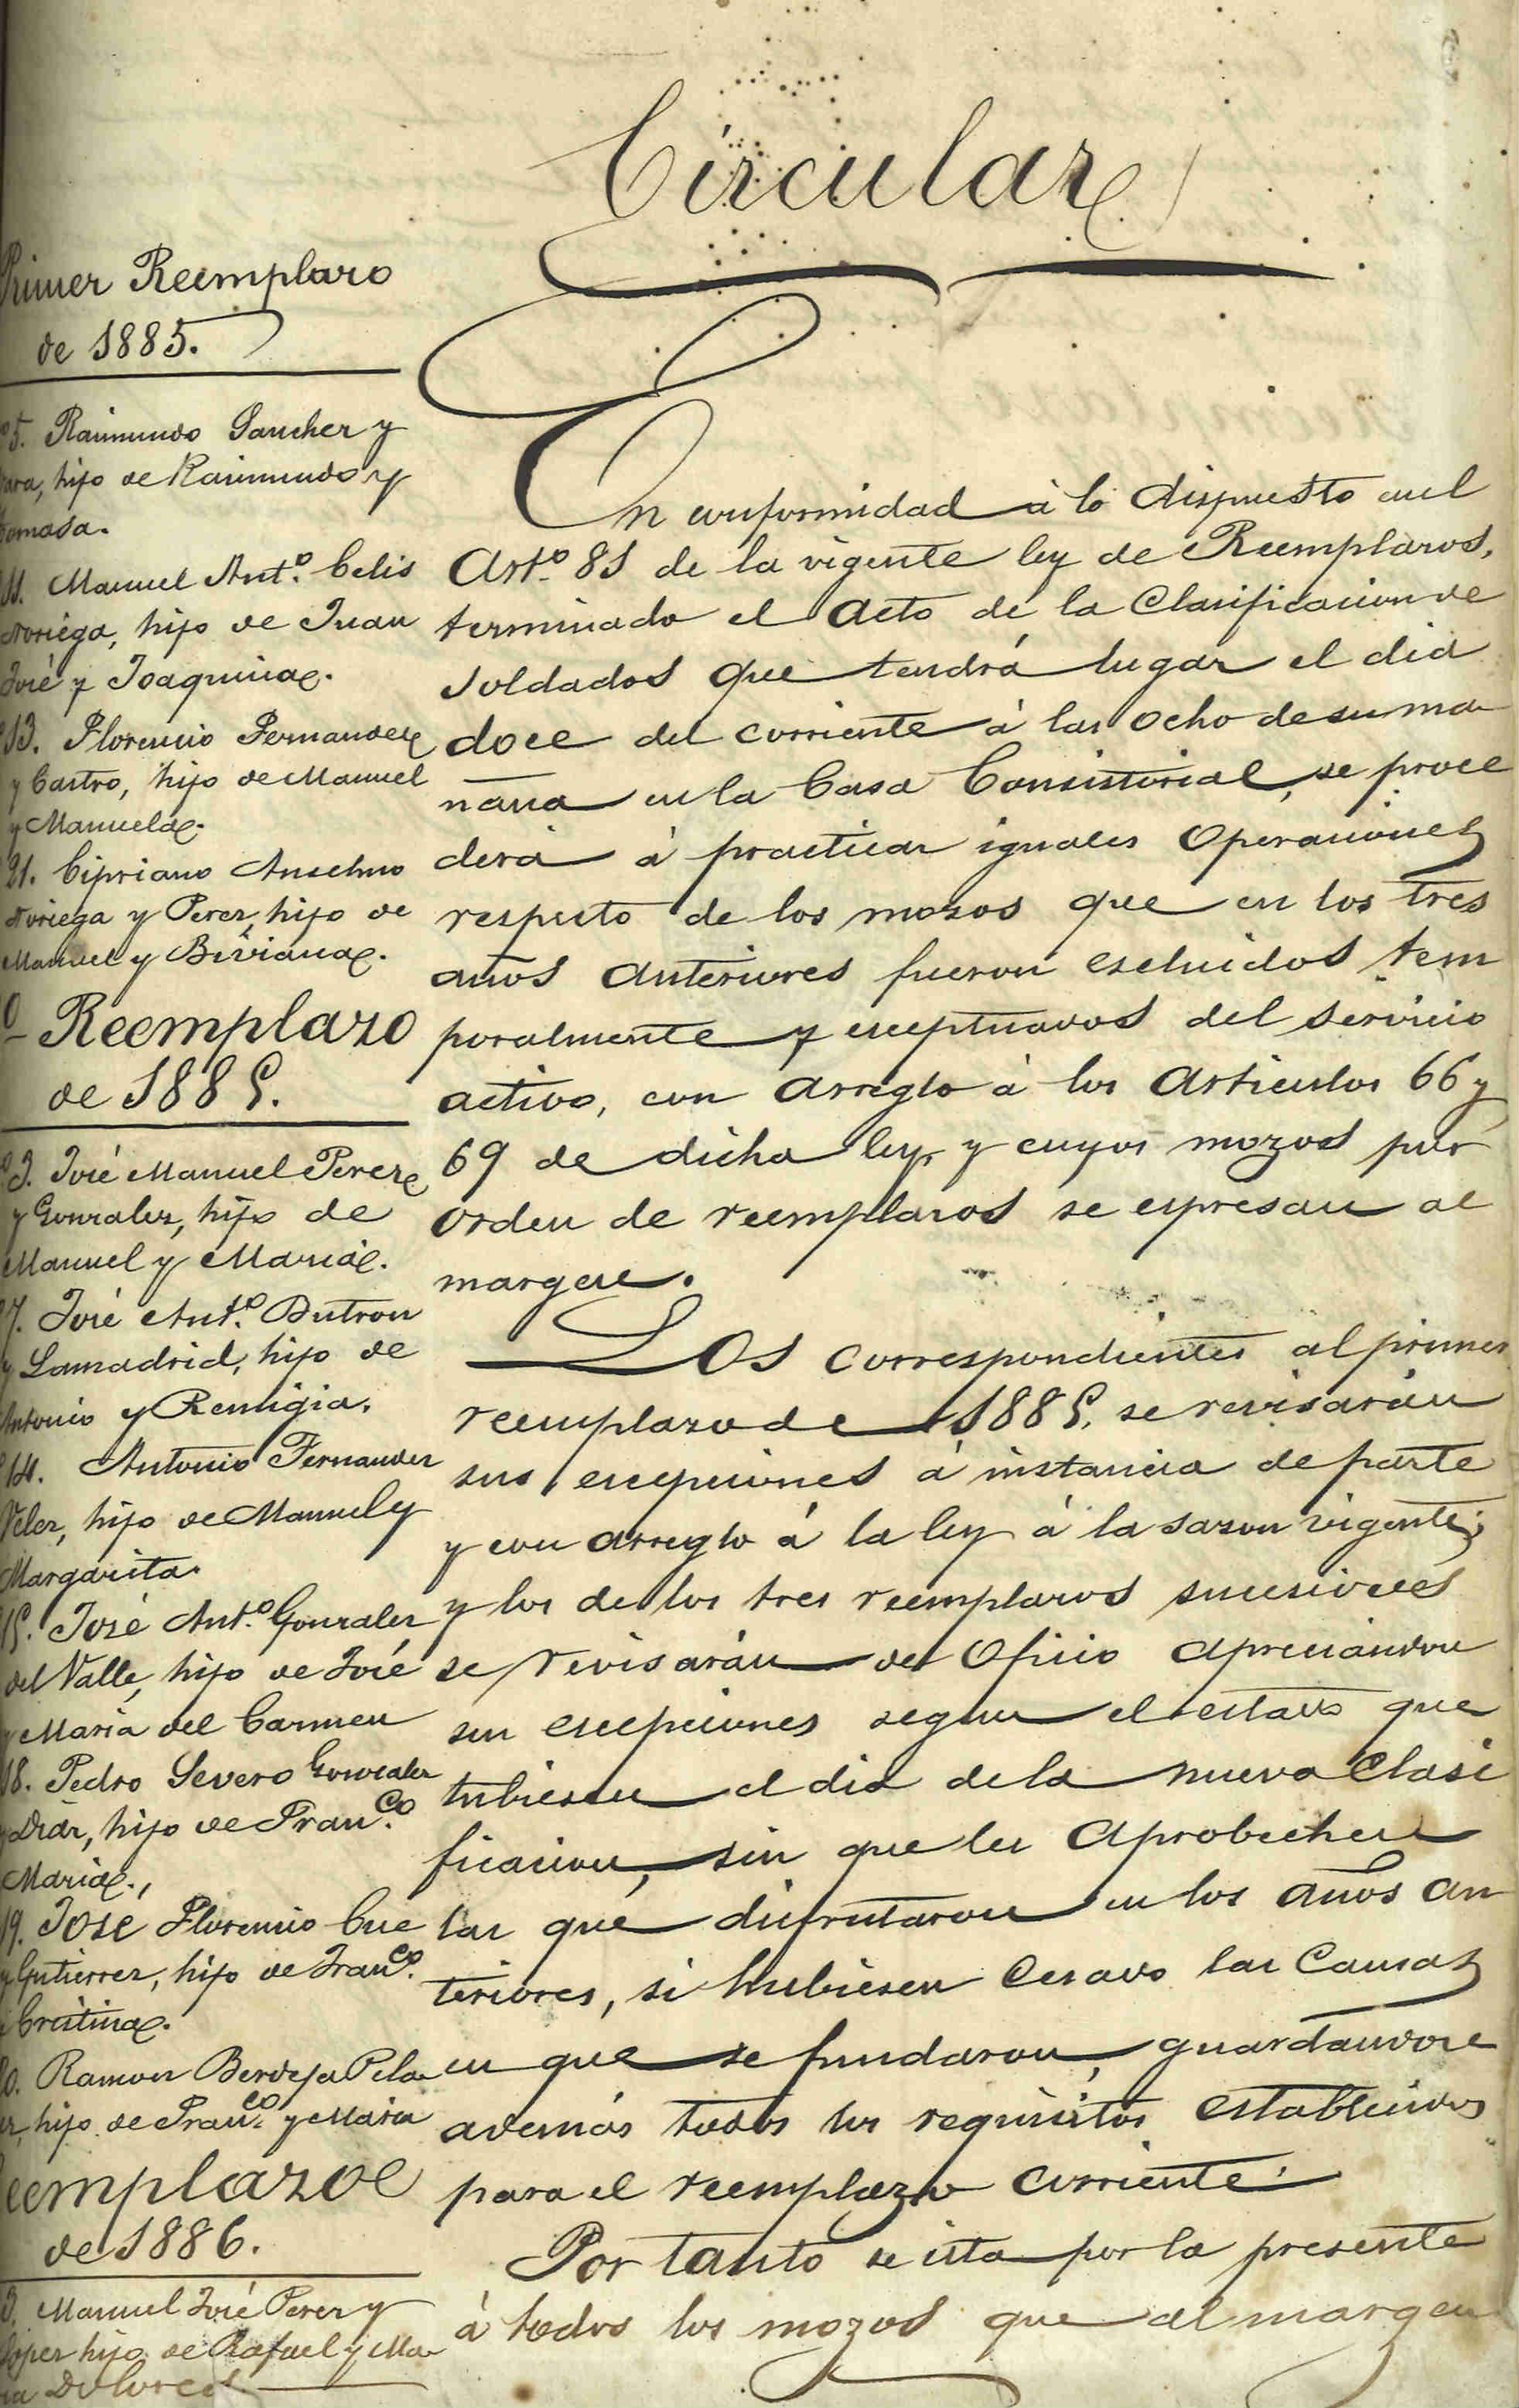 Circular
Primer Reemplazo
de 1885.
5. Raimundo Sanchez y
hijo de Raimundo y
Tomasa.
11. Manuel Ant.º Celis
Noriega, hijo de Juan
José y Joaquina.
13. Florencio Fernandez
y Castro, hijo de Manuel
y Manuela.
21. Cipriano Anselmo
Noriega y Perez, hijo de
Manuel y Biviana.
Reemplazo
de 1885.
3. José Manuel Perez
y Gonzalez, hijo de
Manuel y Maria.
7. José Ant.º Butron
y Lamadrid, hijo de
Antonio y Remigia.
14. Antonio Fernandez
Velez, hijo de Manuel y
Margarita.
15. José Ant.º Gonzalez
del Valle, hijo de José
y Maria del Carmen
18. Pedro Severo Gonzalez
y Diaz, hijo de Fran.co
Maria.,
19. José Florencio Cue
y Gutierrez, hijo de Fran.co
Cristina.
20. Ramon Berdeja Pela
ez, hijo de Fran.co y Maria
Reemplazo
de 1886.
3. Manuel José Perez y
Lopez hijo de Rafael y Ma
ria Dolores.
En conformidad á lo dispuesto en el
Art.º 81 de la vigente ley de Reemplazos,
terminado el acto de la Clasificacion de
soldados que tendrá lugar el dia
doce del corriente á las ocho de su ma
ñana en la Casa Consistorial, se proce
derá á practicar iguales operaciones
respecto de los mozos que en los tres
años anteriores fueron escluidos tem
poralmente y esceptuados del servicio
activo, con arreglo á los Articulos 66 y
69 de dicha ley, y cuyos mozos por
orden de reemplazos se espresan al
margen.
Los correspondientes al primer
reemplazo de 1885, se revisarán
sus escepciones á instancia de parte
y con arreglo á la ley á la sazon vigente;
y los de los tres reemplazos sucesivos
se revisarán de oficio apreciandose
sus escepciones segun el estado que
tubiesen el dia de la nueva Clasi
ficacion, sin que les aprobechen
las que disfrutaron en los años an
teriores, si hubiesen cesado las causas
en que se fundaron, guardandose
además todos los requisitos establecidos
para el reemplazo corriente.
Por tanto se cita por la presente
á todos los mozos que al margen